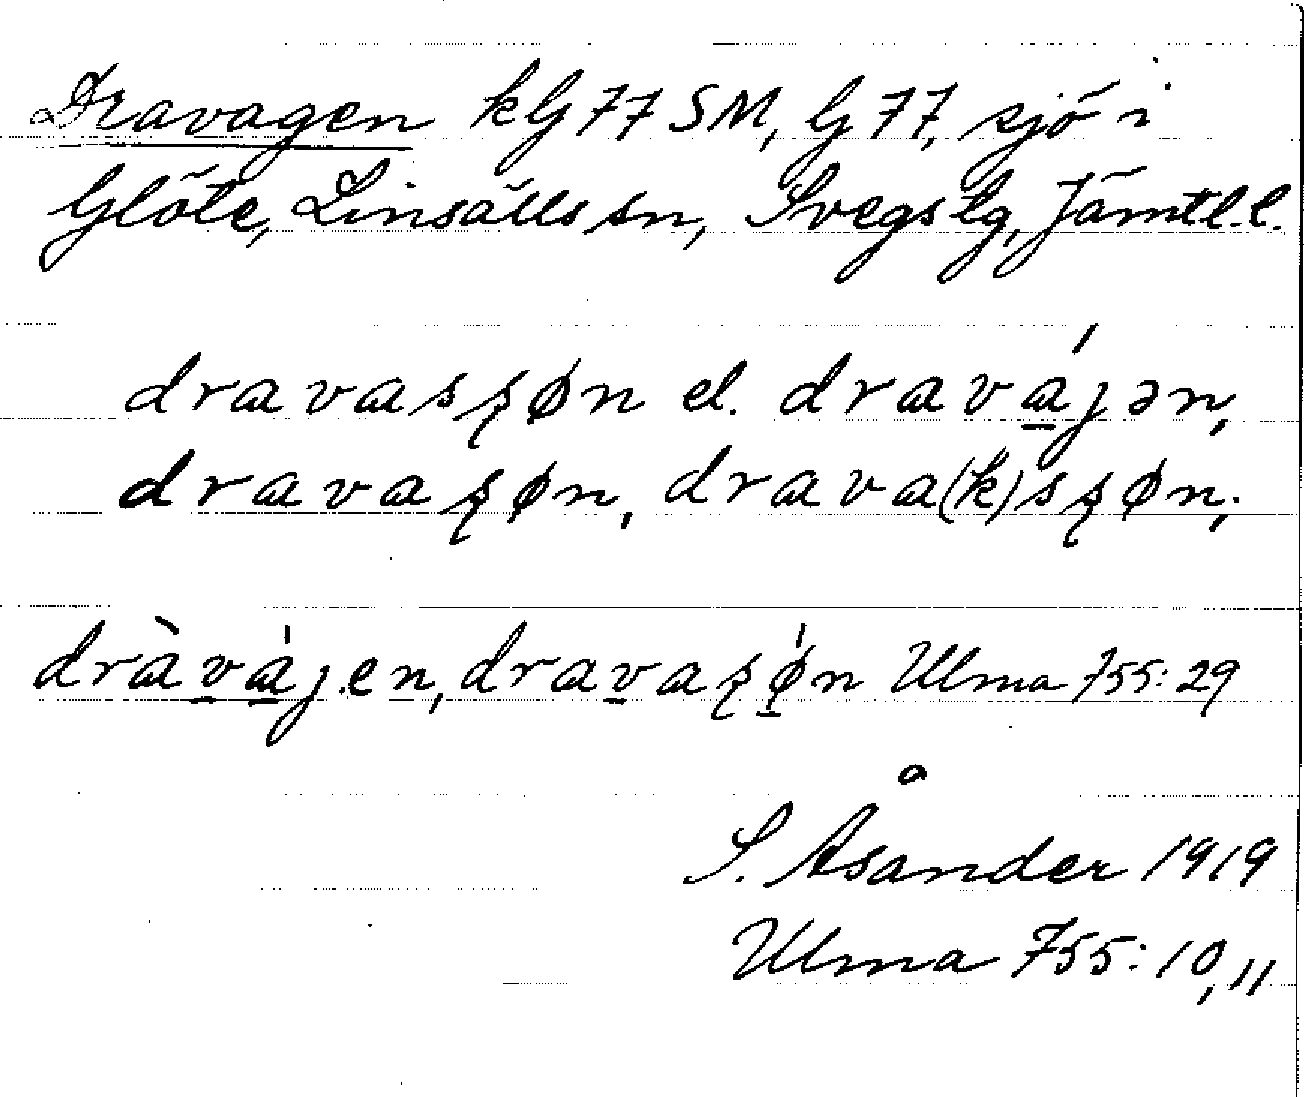 Dravagen kG77SM, G77, sjö i
Glöte, Linsälls sn, Svegs tg, Jämtl.l.
dravasʂøn el. dravájən,
dravaʂøn, drava(k)sʂøn;
dràv̲á̲jen, drav̲aʂǿ̲n Ulma 755:29
S. Åsander 1919
Ulma 755:10,11